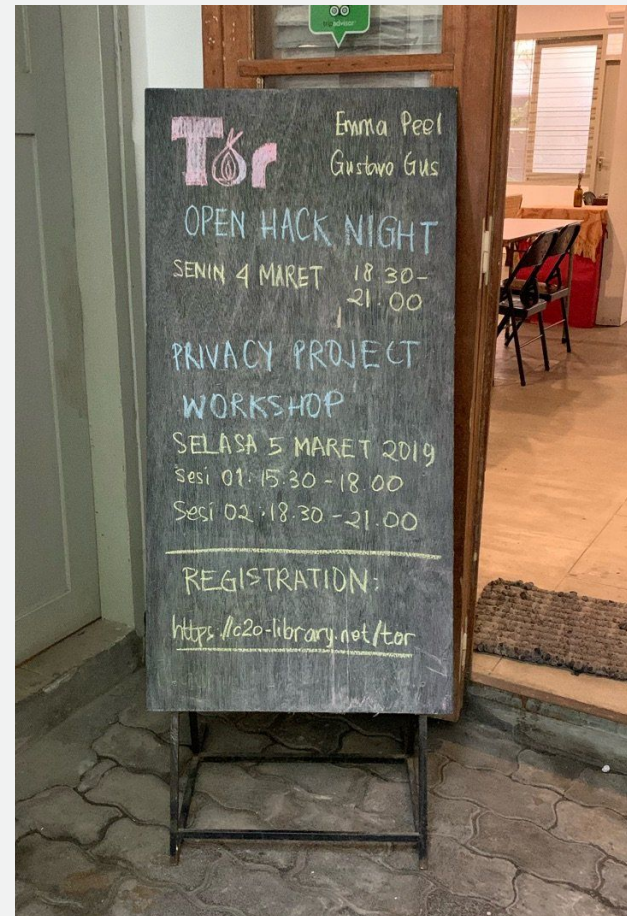 tripadvisor
Tor
Emma Peel
Gustavo Gus
OPEN HACK NIGHT
SENIN 4 MARET 18 30-
21.00
PRIVACY PROJECT
WORKSHOP
SELASA 5 MARET 2019
Sesi 01. 15.30 - 18.00
Sesi 02 . 18.30 - 21.00
REGISTRATION:
https://c2o-library.net/tor